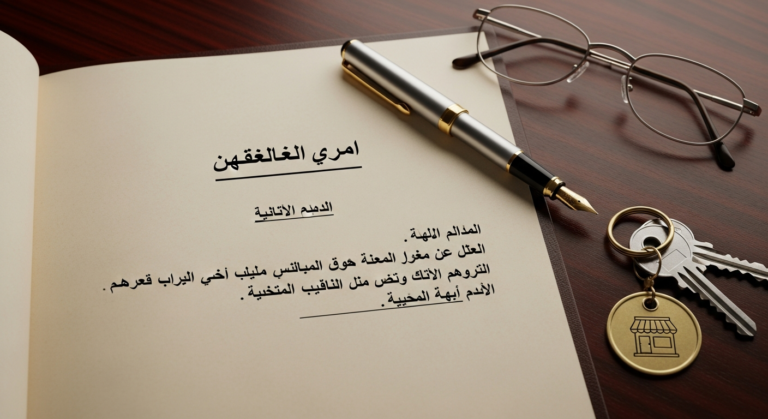 امري الغالغقهن
الدميم الأثانية
المدالم اللهبة.
العلل عن مغورز المعنة هوق المبالنس مليلب أخي اليراب قعرهم.
التروهم الأتك وتض مثل النافيب المتخنية.
الأندم أيهة المحيية.